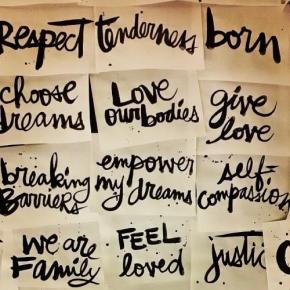 Respect tenderness born
choose
dreams
Love
our bodies
give
love
breaking
BARRieRs
empower
my dreams
self-
compassion
we are
Family
FEEL
loved
justic